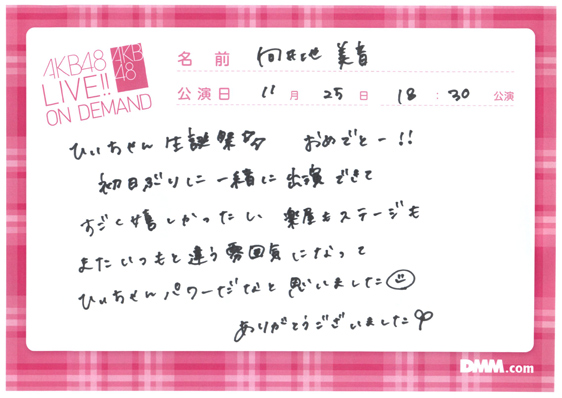 AKB48
LIVE!!
ON DEMAND
AKB
48
名前 向井地 美音
公演日 11月 25日 18:30 公演
ひぃちゃん 生誕祭 おめでとー!!
初日ぶりに 一緒に 出演できて
すごく嬉しかったし 楽屋もステージも
またいつもと違う雰囲気になって
ひぃちゃんパワーだなと思いました
ありがとうございました
DMM.com